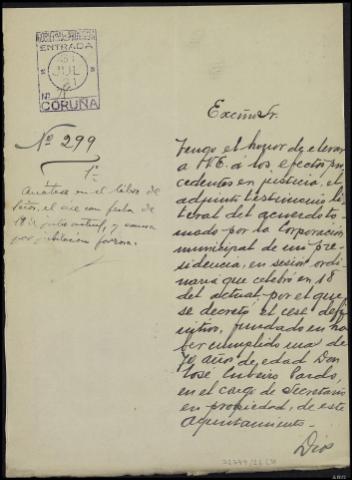 ENTRADA
JUL
21
Nº
CORUÑA
Nº 299
Anótese en el libro de
el cese con fecha de
18 y causa
por jubilación forzosa.
Excmo Sr.
Tengo el honor de elevar
a V.E. a los efectos pro
cedentes en justicia, el
adjunto testimonio li
teral del acuerdo to
mado por la Corporación
municipal de mi pre
sidencia, en sesión ordi
naria que celebró en 18
del actual por el que
se decretó el cese defi
nitivo, fundado en ha
ber cumplido mas de
70 años de edad Don
José Cubeiro Pardo,
en el cargo de Secretario
en propiedad, de este
Ayuntamiento.-
Dios